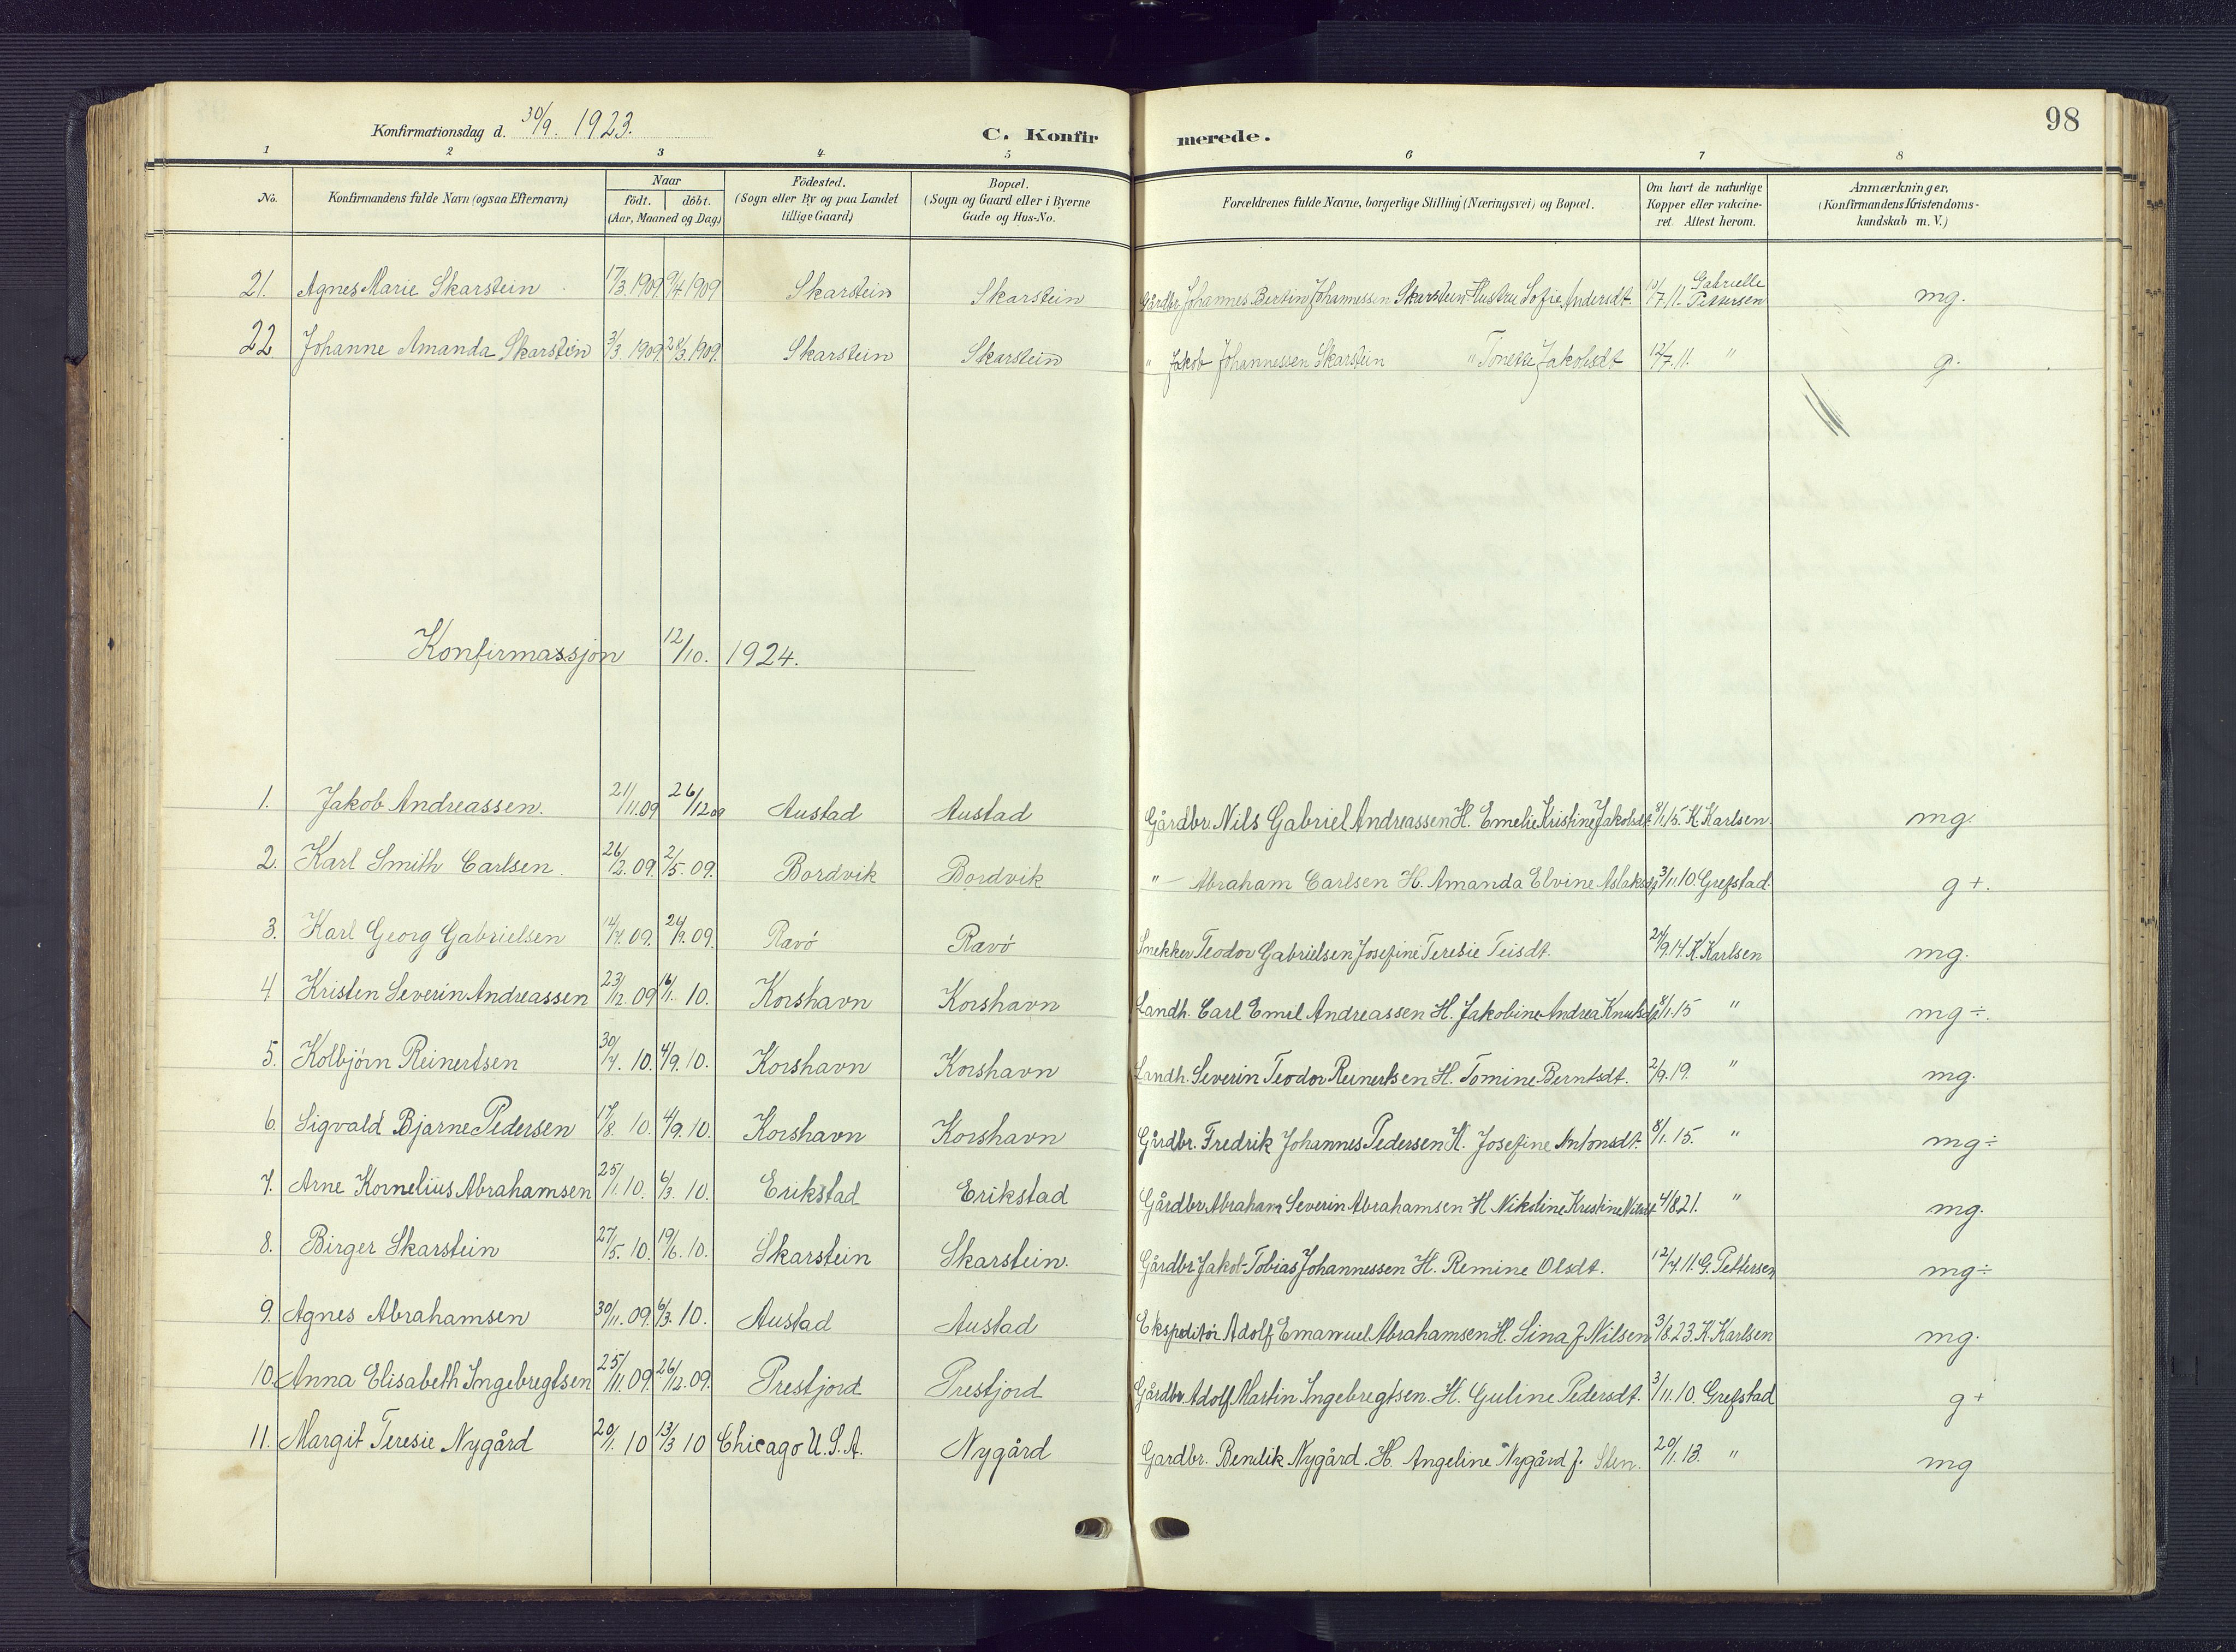 98
Konfirmationsdag d. 30/9. 1923. C. Konfir merede.
1 2 3 4 5 6 7 8
No. Konfirmandens fulde Navn (ogsaa Efternavn) Naar født. døbt. (Aar, Maaned og Dag) Födested. (Sogn eller By og paa Landet tillige Gaard) Bopæl. (Sogn og Gaard eller i Byerne Gade og Hus-No. Forældrenes fulde Navne, borgerlige Stilling (Næringsvei) og Bopæl. Om havt de naturlige Kopper eller vakcineret. Attest herom. Anmærkninger, (Konfirmandens Kristendomskundskab m. V.)
21. Agnes Marie Skarstein 17/3. 1909 9/4 1909 Skarstein Skarstein Gårdbr. Johannes Bertin Johannessen Skarstein Hustru Sofie Andersdt. 7.11. Gabrielle Pettersen mg.
22 Johanne Amanda Skarstein 3/3. 1909 28/3. 1909. Skarstein Skarstein " Jakob Johannessen Skarstein " Tonette Jakobsdt 12/7.11. " g.
Konfirmassjon 12/10. 1924.
1. Jakob Andreassen. 21/11.09 26/12 09 Austad Austad Gårdbr. Nils Gabriel Andreassen H. Emelie Kristine Jakobsdt. 8/1.15. K. Karlsen. mg.
2. Karl Smith Carlsen. 26/2.09. 2/5.09. Bordvik Bordvik " Abraham Carlsen H. Amanda Elvine Aslaksdt 3/11.10. Grefstad. g+.
3. Karl Georg Gabrielsen 09. 09. Ravö Ravö Snekker Teodor Gabrielsen Josefine Teresie Teisdt. 24/9.14. K. Karlsen mg.
4. Kristen Severin Andreassen 23/12.09 16/1. 10. Korshavn Korshavn Landh. Carl Emil Andreassen H. Jakobine Andrea Knutsdt 8/1.15 " mg÷.
5. Kolbjörn Reinertsen 30/4. 10. 4/9.10. Korshavn Korshavn Landh. Severin Teodor Reinertsen H. Tomine Berntsdt. 2/9.19. " mg.
6. Sigvald Bjarne Pedersen 17/8. 10. 4/9.10. Korshavn Korshavn Gårdbr. Fredrik Johannes Pedersen H. Josefine Antonsdt. 8/1.15. " mg÷
7. Arne Kornelius Abrahamsen 25/1.10. 6/3. 10. Erikstad Erikstad Gårdbr. Abraham Severin Abrahamsen H Nikoline Kristine Nilsdt 4/8 21. " mg.
8. Birger Skarstein 27/5.10. 19/6.10. Skarstein Skarstein. Gårdbr. Jakob Tobias Johannessen H. Remine Olsdt. 12/7.11. G. Pettersen mg÷
9. Agnes Abrahamsen 30/11.09. 6/3. 10. Austad Austad Ekspeditör Adolf Emanuel Abrahamsen H. Lina J Nilsen 3/8.23. K. Karlsen mg.
10. Anna Elisabeth Ingebregtsen 25/11.09. 26/12.09. Prestjord Prestjord Gårdbr. Adolf Martin Ingebregtsen. H. Guline Pedersdt. 3/11.10. Grefstad g+
11. Margit Teresie Nygård 20/1. 10 13/3 10 Chicago U.S.A. Nygård Gardbr. Bendik Nygård. H. Angeline Nygård f. 20/1.13. " mg